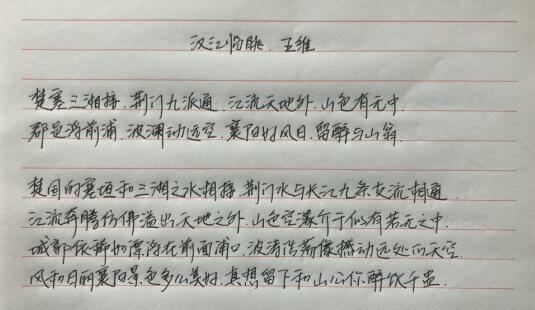 汉江临眺.王维
楚塞三湘接.荆门九派通.江流天地外.山色有无中.
郡邑浮前浦.波澜动远空.襄阳好风日.留醉与山翁.
楚国的塞垣和三湘之水相接.荆门水与长江九条支流相通.
江流奔腾仿佛溢出天地之外.山色空濛介于似有若无之中.
城郭依稀如漂浮在前面浦口.波涛浩荡像撼动远处的天空.
风和日丽襄阳景色多么美好.真想留下和山公你醉饮千盅.